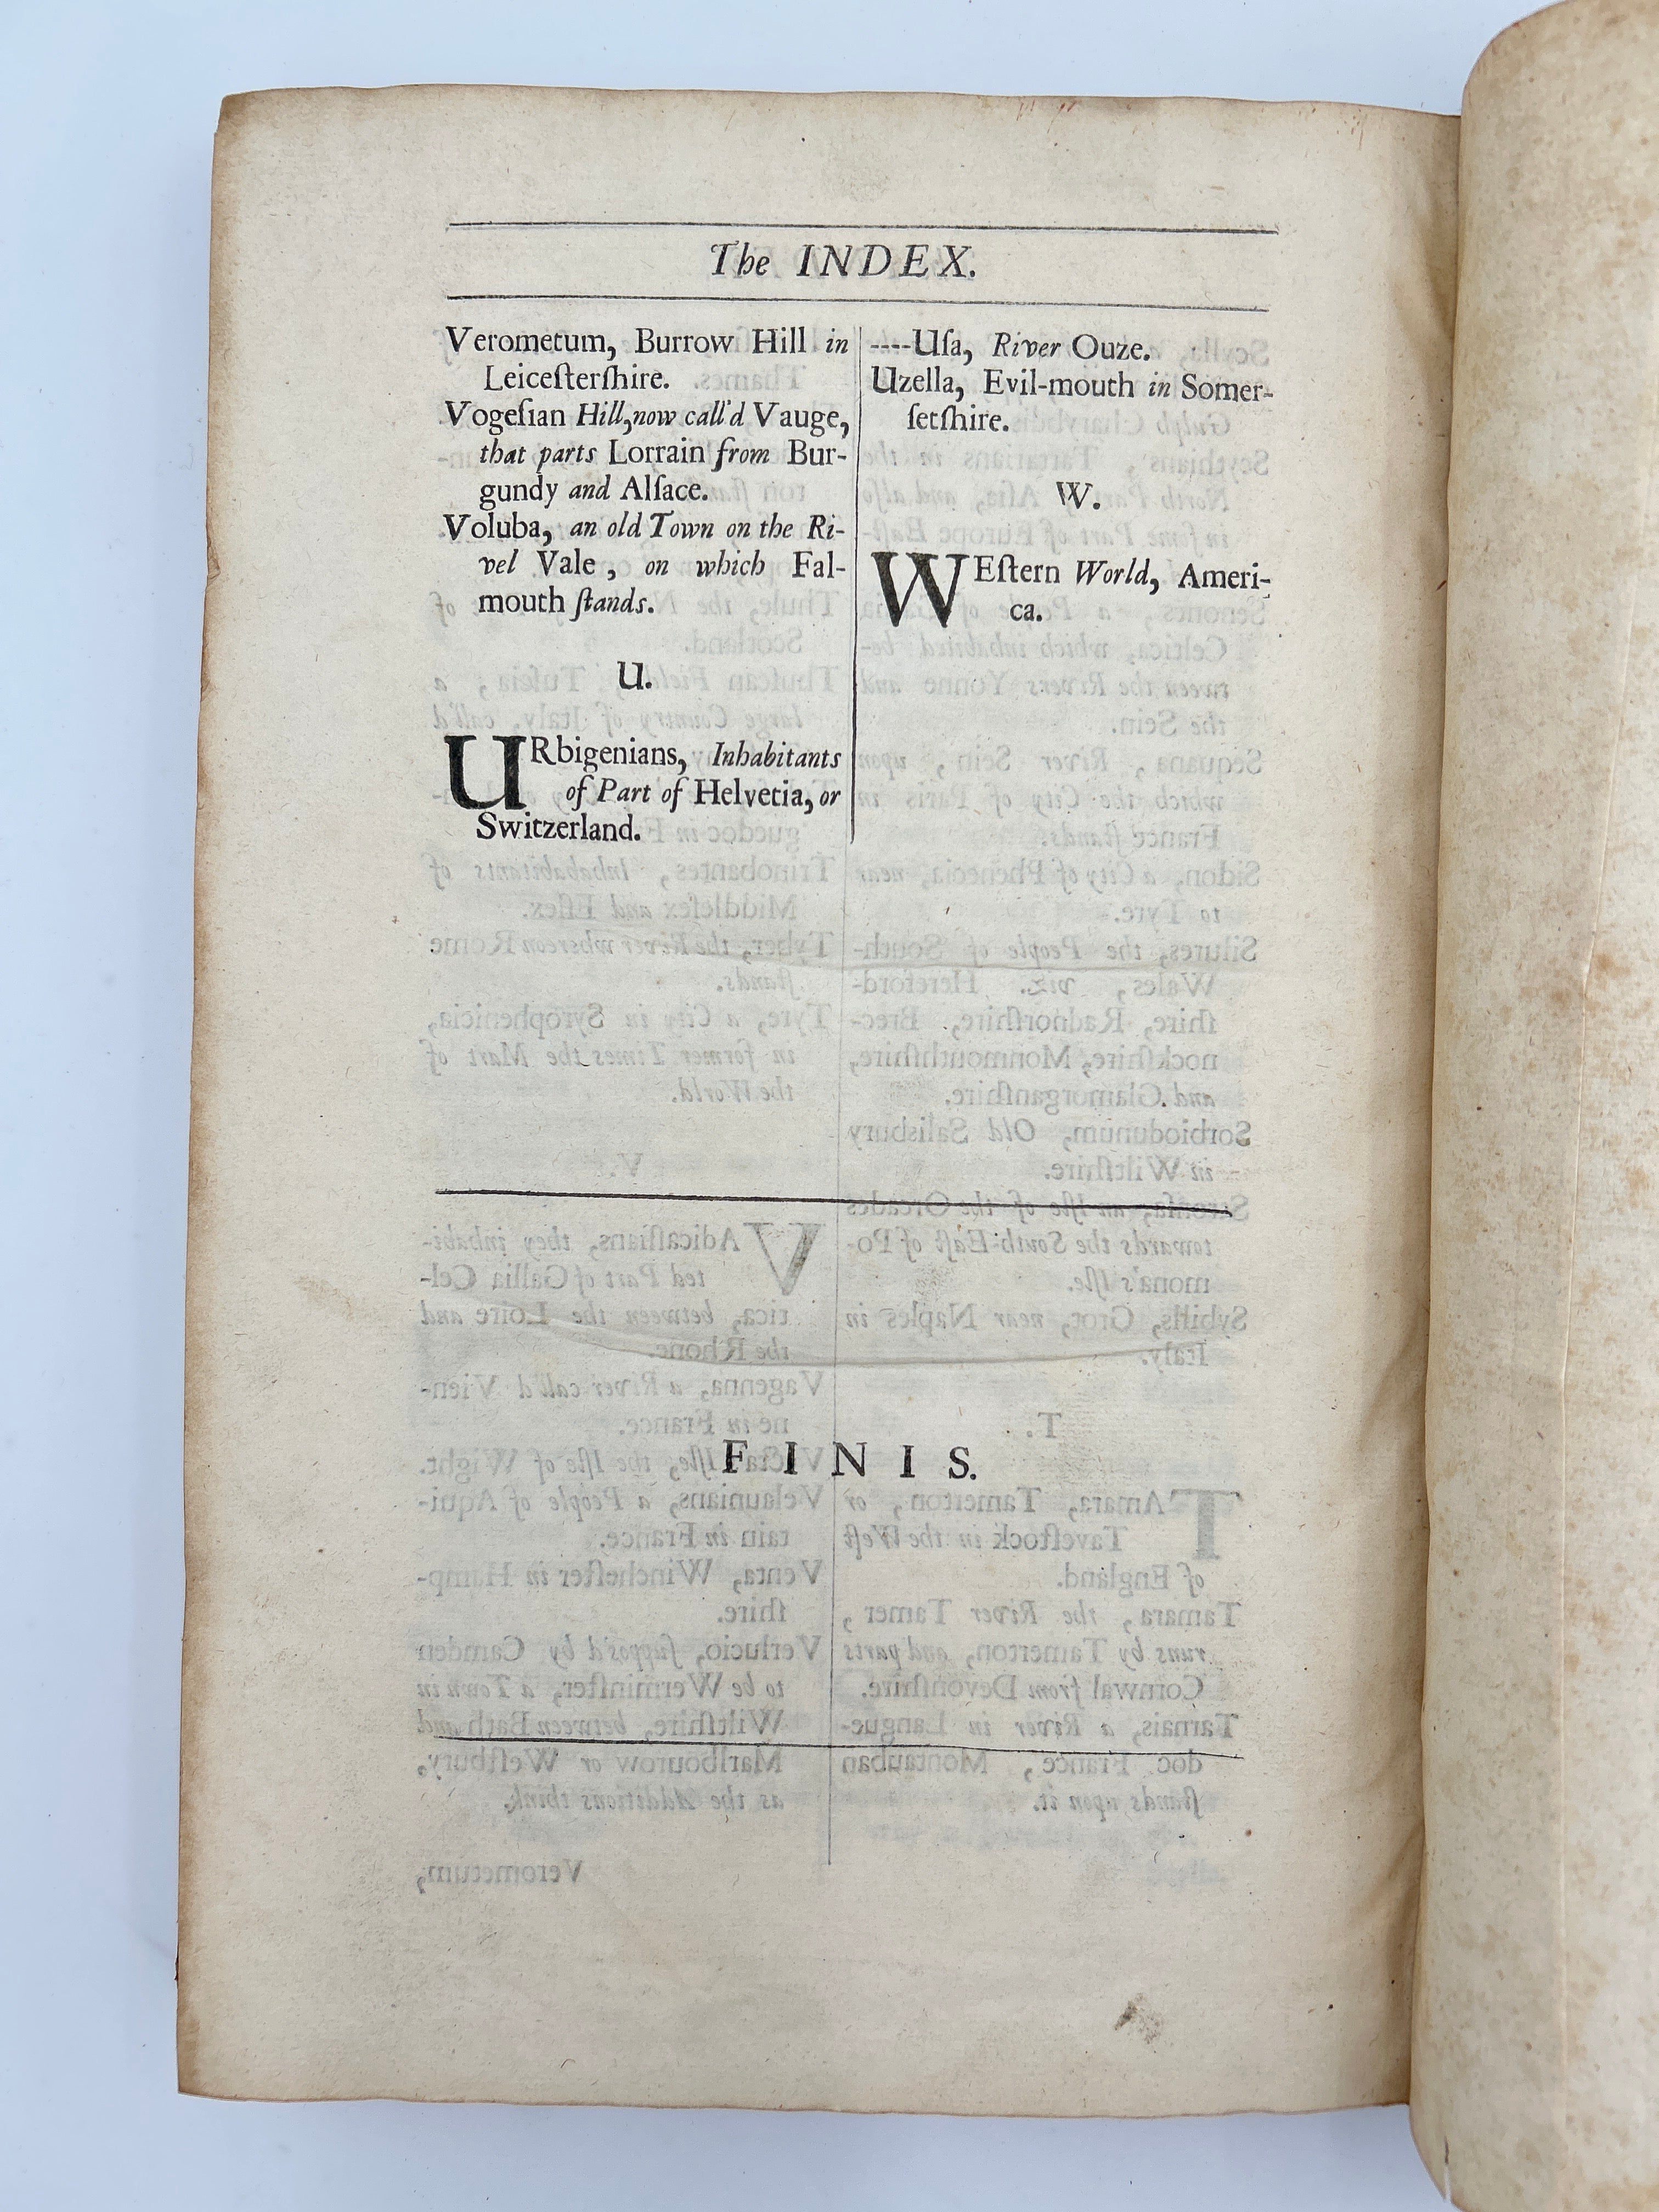 The INDEX.
Verometum, Burrow Hill in
Leiceſterſhire.
Vogeſian Hill, now call'd Vauge,
that parts Lorrain from Bur-
gundy and Alſace.
Voluba, an old Town on the Ri-
vel Vale, on which Fal-
mouth ſtands.
U.
URbigenians, Inhabitants
of Part of Helvetia, or
Switzerland.
----Uſa, River Ouze.
Uzella, Evil-mouth in Somer-
ſetſhire.
W.
WEſtern World, Ameri-
ca.
FINIS.